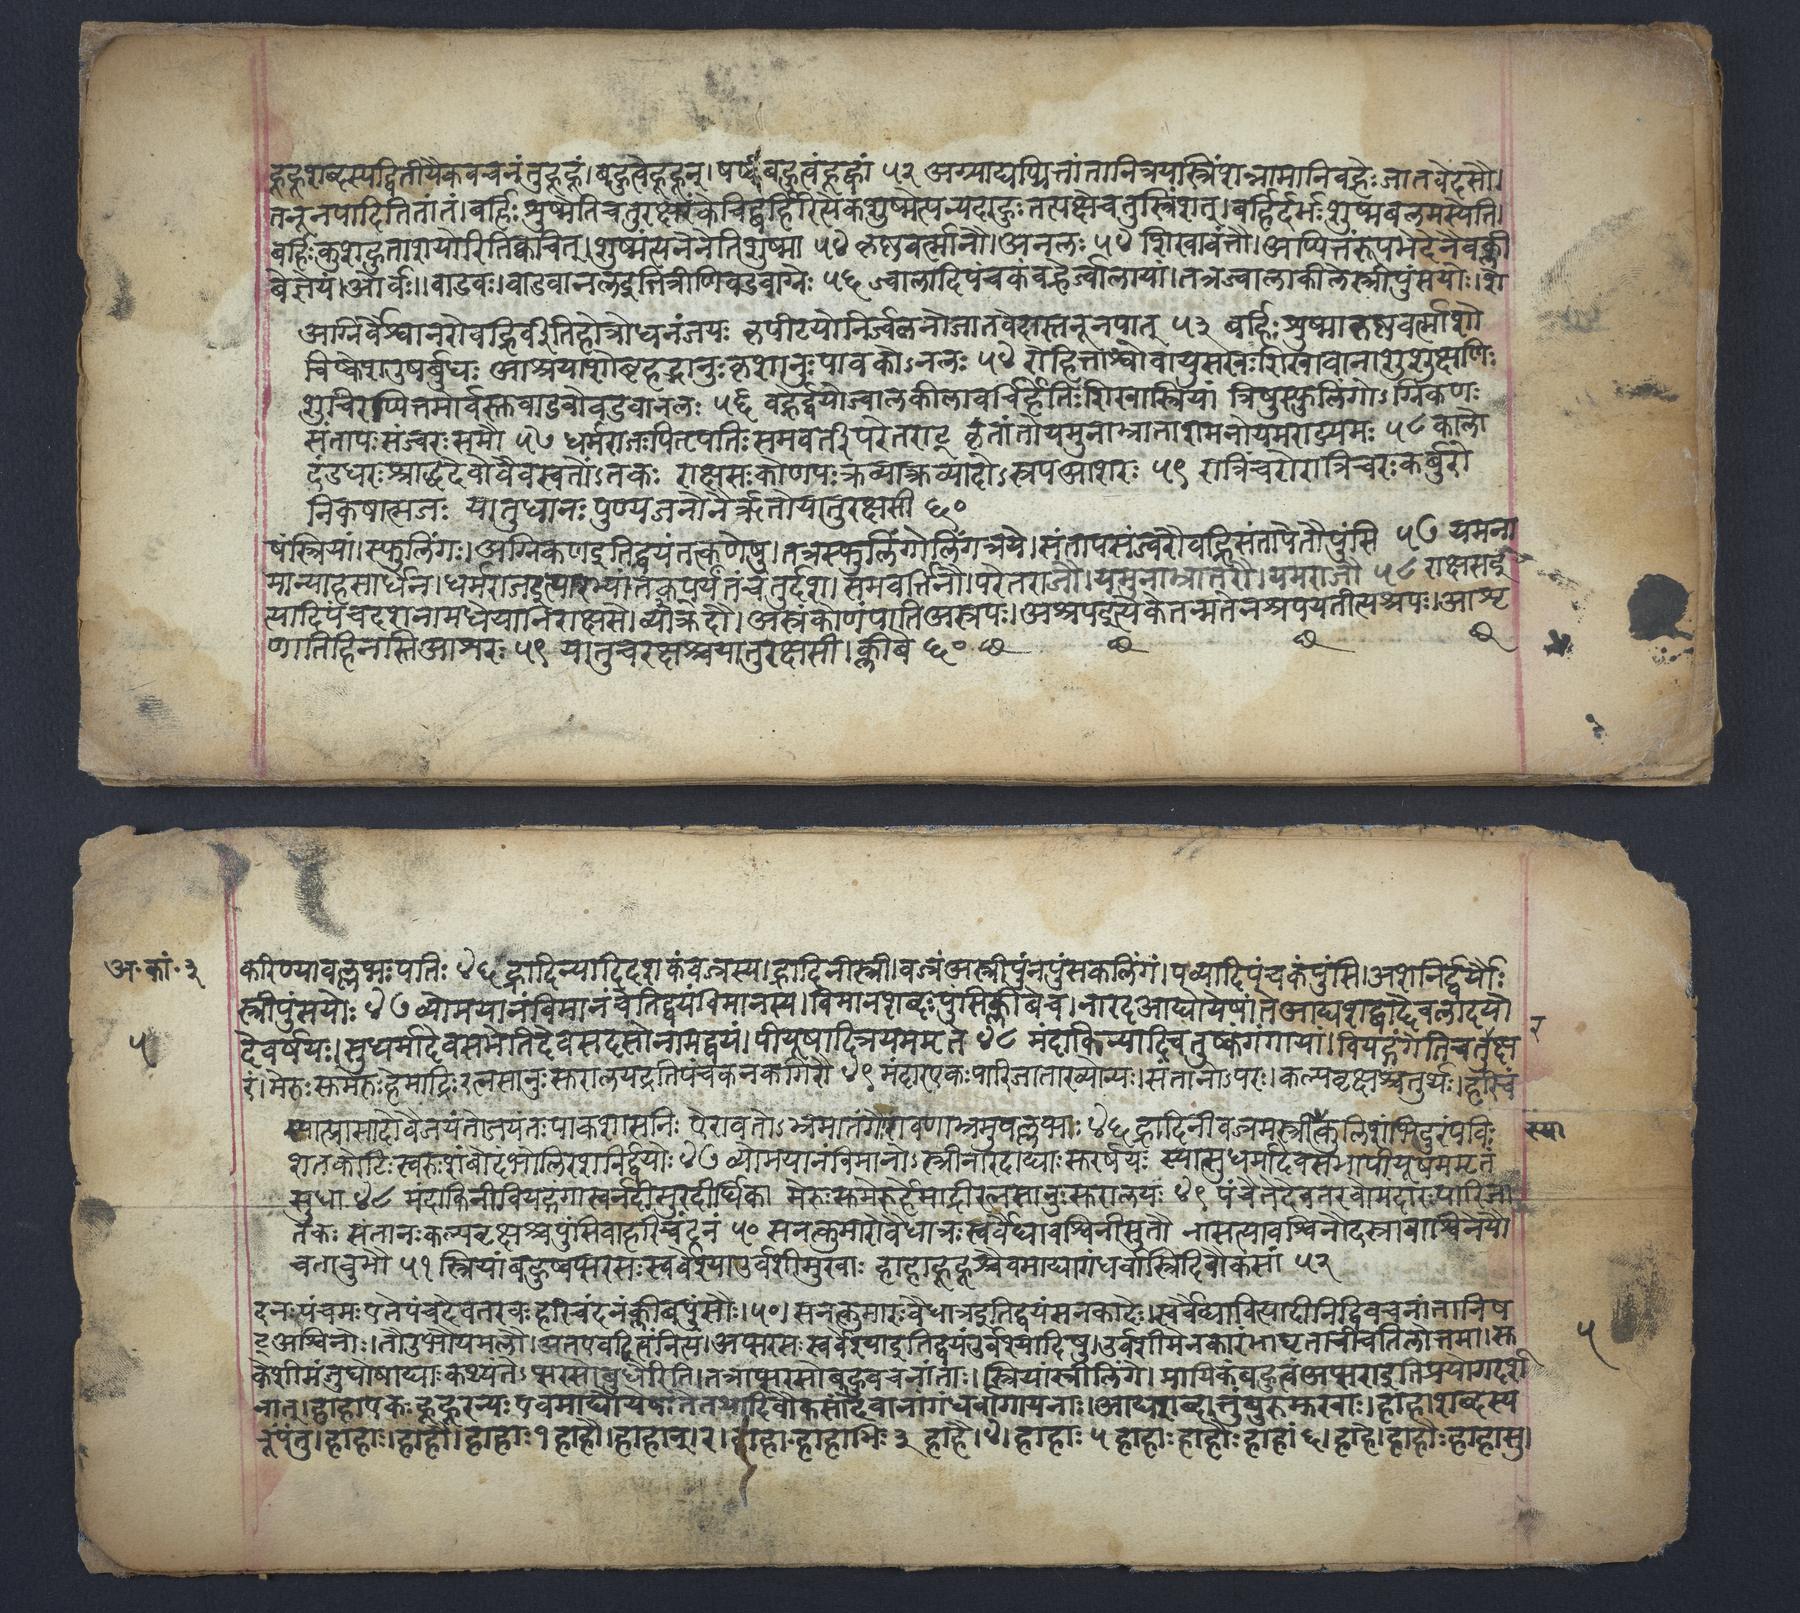 हूहूशब्दस्यद्वितीयैकवचनंतुहूहूं।बहुत्वेहूहून्।षष्ठीबहुत्वंहूह्वां ५२ अग्न्याद्यप्पित्तांतानित्रयस्त्रिंशन्नामानिवह्नेः जातवेदसौ।
तनूनपादितितांतं।बर्हिःशुष्मेतिचतुरक्षरंकेचिद्बर्हिरित्येकंशुष्मेत्यन्यदाहुःतत्पक्षेचतुस्त्रिंशत्।बर्हिर्दर्भःशुष्मंबलमस्येति।
बर्हिःकुशहुताशयोरितिक्वचित्।शुष्मंत्यनेनेतिशुष्मा ५४ कृष्णवर्त्मानौ।अनलः ५४ शिखावंतौ।अप्पित्तंरूपभेदेनैवक्ली
बेज्ञेयं।और्वः।।वाडवः।वाडवानलइतित्रीणिवडवाग्नेः ५६ ज्वालादिपंचकंवह्नेर्ज्वालायां।तत्रज्वालाकीलस्त्रीपुंसयोः।शि
अग्निर्वैश्वानरोवह्निर्वीतिहोत्रोधनंजयः कृपीटयोनिर्ज्वलनोजातवेदास्तनूनपात् ५३ बर्हिःशुष्माकृष्णवर्त्माशो
चिष्केशउषर्बुधः आश्रयाशोबृहद्भानुःकृशानुःपावकोऽनलः ५४ रोहिताश्वोवायुसखःशिखावानाशुशुक्षणिः
शुचिरप्पित्तमौर्वस्तुवाडवोवडवानलः ५६ वह्नेर्द्वयोर्ज्वालकीलावर्चिर्हेतिःशिखास्त्रियां त्रिषुस्फुलिंगोऽग्निकणः
संतापःसंज्वरःसमौ ५७ धर्मराजःपितृपतिःसमवर्ती परेतराट् कृतांतोयमुनाभ्राताशमनोयमराड्यमः ५८ कालो
दंडधरःश्राद्धदेवोवैवस्वतोंऽतकः राक्षसःकौणपःक्रव्यात्क्रव्यादोऽस्रपआशरः ५९ रात्रिंचरोरात्रिचरःकर्बुरो
निकषात्मजः यातुधानः पुण्यजनोनैर्ऋतोयातुरक्षसी ६०
षंस्त्रियां।स्फुलिंगः।अग्निकणइतिद्वयंतत्कणेषु।तत्रस्फुलिंगोलिंगत्रये।संतापसंज्वरौवह्निसंतापेतौपुंसि ५७ यमना
मान्याहसार्धेन।धर्मराजइत्यारभ्यांतकपर्यंतंचतुर्दश।समवर्त्तिनौ।परेतराजौ।यमुनाभ्रातरौ।यमराजौ ५८ राक्षसइ
त्यादिपंचदशनामधेयानिराक्षसे।क्रव्यादौ।अस्रंकोणंपातिअस्रपः।अश्रपइत्येकेतन्मतेनअपयतीत्यश्रपः।आशृ
णातिहिनस्तिआशरः ५९ यातुचरक्षश्चयातुरक्षसी।क्लीबे ६०
अ॰कां॰१
५
करिण्यावल्लभःपतिः ४६ ह्रादिन्यादिदशकंवज्रस्य।ह्रादिनीस्त्री।वज्रंअस्त्रीपुंनपुंसकलिंगं।पव्यादिपंचकंपुंसि।अशनिर्द्वयोः
स्त्रीपुंसयोः ४७ व्योमयानंविमानंचेतिद्वयंविमानस्य।विमानशब्दःपुंसिक्लीबेच।नारदआद्योयेषां।तेआद्यशब्दाद्देवलादयो
देवर्षयः।सुधर्मादेवसभेतिदेवसदसोनामद्वयं।पीयूषादित्रयममृते ४८ मंदाकिन्यादिचतुष्कंगंगायां।वियद्गंगेतिचतुरक्ष
रं।मेरुःसुमेरुःहेमाद्रिःरत्नसानुःसुरालयइतिपंचकनकगिरौ ४९ मंदारएकःपारिजाताख्योन्यः।संतानोऽपरः।कल्पवृक्षश्चतुर्थः।हरिचं
स्यात्प्रासादोवैजयंतोजयंतःपाकशासनिः ऐरावतोऽभ्रमातंगैरावणाभ्रमुवल्लभाः ४६ ह्रादिनीवज्रमस्त्रीकुलिशंभिदुरंपविः
शतकोटिःस्वरुःशंबोदंभोलिरशनिर्द्वयोः ४७ व्योमयानंविमानोऽस्त्रीनारदाद्याःसुरर्षयः स्यात्सुधर्मादेवसभापीयूषममृतं
सुधा ४८ मंदाकिनीवियद्गंगास्वर्नदीसुरदीर्घिका मेरुःसुमेरुर्हेमाद्रीरत्नसानुःसुरालयः ४९ पंचैतेदेवतरवोमंदारःपारिजा
तकः संतानःकल्पवृक्षश्चपुंसिवाहरिचंदनं ५० सनत्कुमारोवैधात्रःस्वर्वैद्यावश्विनीसुतौ नासत्यावश्विनौदस्रावाश्विनेयौ
चतावुभौ ५१ स्त्रियांबहुष्वप्सरसःस्वर्वेश्याउर्वशीमुखाः हाहाहूहूश्चैवमाद्यागंधर्वास्त्रिदिवौकसां ५२
दनःपंचमःएतेपंचदेवतरवः।हरिचंदनंक्लीबपुंसोः।५०।सनत्कुमारःवैधात्रइतिद्वयंसनकादेः।स्वर्वैद्यावित्यादीनिद्विवचनांतानिष
ट्अश्विनोः।तौउभौयमलौ।अतएवद्वित्वंनित्यं।अप्सरसःस्वर्वेश्याइतिद्वयंउर्वश्यादिषु।उर्वशीमेनकारंभाघृताचीचतिलोत्तमा।सु
केशीमंजुघोषाद्याःकथ्यंतेऽप्सरसोबुधैरिति।तत्राप्सरसोबहुवचनांताः।स्त्रियांस्त्रीलिंगे।प्रायिकंबहुत्वंअप्सराइतिप्रयोगदर्श
नात्।हाहाएकःहूहूरन्यःएवमाद्यायेषांतेतथादिवौकसांदेवानांगंधर्वागायनाः।आद्यशब्दात्तुंबुरुप्रमुखाः।हाहाशब्दस्य
रूपंतु।हाहाः।हाहौ।हाहाः१हाहौ।हाहान्।२।हाहा।हाहाभिः३ हाहै।४।हाहाः५हाहाःहाहौःहाहां६।हाहे।हाहौःहाहासु।
र
स्या
५